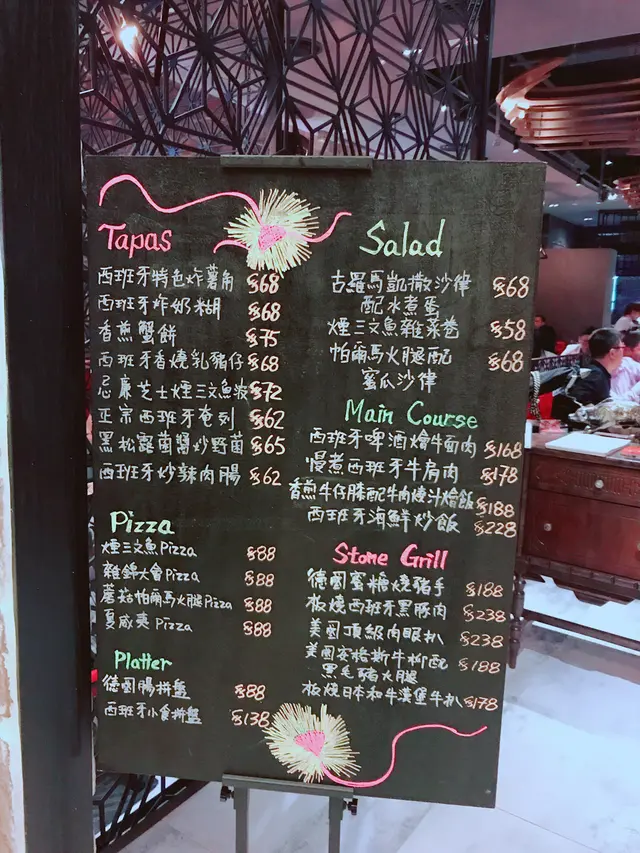 Tapas
西班牙特色炸薯角 $68
西班牙炸奶糊 $68
香煎蟹餅 $75
西班牙香燒乳豬仔 $68
忌廉芝士煙三文魚波 $72
正宗西班牙奄列 $62
黑松露菌醬炒野菌 $65
西班牙炒辣肉腸 $62
Pizza
煙三文魚Pizza $88
雜錦大會Pizza $88
蘑菇帕爾馬火腿Pizza $88
夏威夷Pizza $88
Platter
德國腸拼盤 $88
西班牙小食拼盤 $138
Salad
古羅馬凱撒沙律 $68
配水煮蛋
煙三文魚雜菜卷 $58
帕爾馬火腿配 $68
蜜瓜沙律
Main Course
西班牙啤酒燴牛面肉 $168
慢煮西班牙牛肩肉 $178
香煎牛仔膝配牛肉燒汁燴飯 $188
西班牙海鮮炒飯 $228
Stone Grill
德國蜜糖燒豬手 $188
板燒西班牙黑豚肉 $238
美國頂級肉眼扒 $238
美國安格斯牛柳配 $188
黑毛豬火腿
板燒日本和牛漢堡牛扒 $178